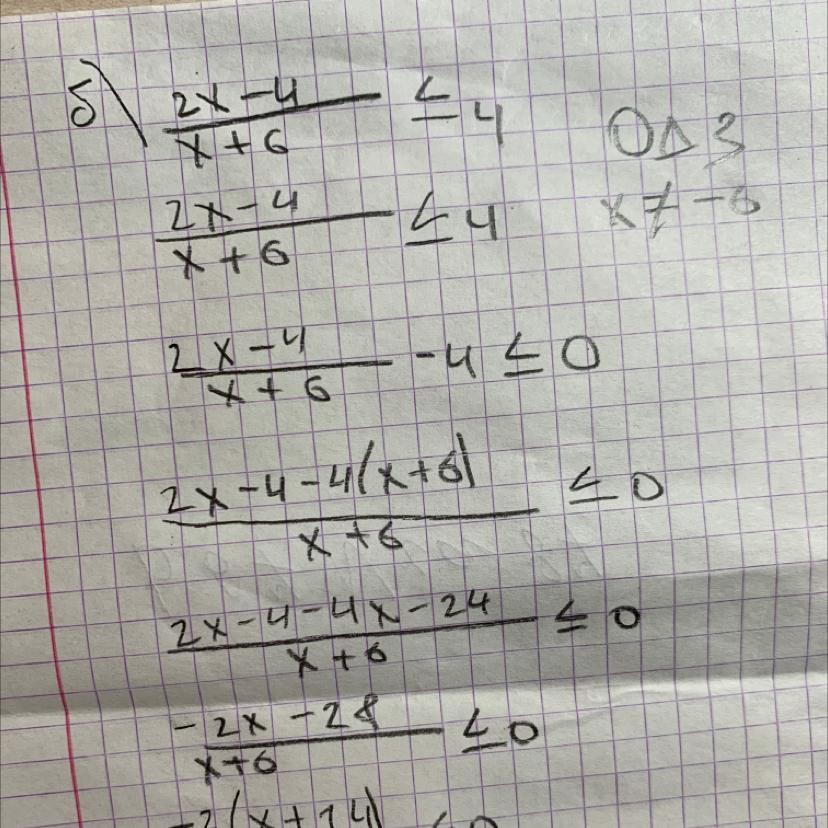 б) (2x-4)/(x+6) ≤ 4
ОДЗ
x ≠ -6
(2x-4)/(x+6) ≤ 4
(2x-4)/(x+6) -4 ≤ 0
(2x-4-4(x+6))/(x+6) ≤ 0
(2x-4-4x-24)/(x+6) ≤ 0
(-2x-28)/(x+6) ≤ 0
-2(x+14) ≤ 0